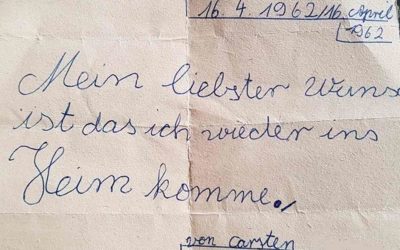 16. 4. 1962/16. April
1962
Mein liebster Wuns
ist das ich wieder ins
Heim komme.
von carsten